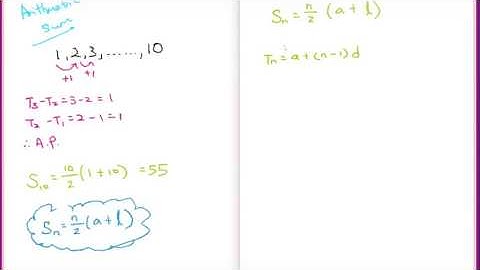 Arithmetic
sum
1, 2, 3, ......, 10
+1 +1
T₃-T₂=3-2=1
T₂-T₁=2-1=1
∴ A.P.
S₁₀=10/2(1+10)=55
Sₙ=n/2(a+l)
Sₙ=n/2(a+l)
Tₙ=a+(n-1)d